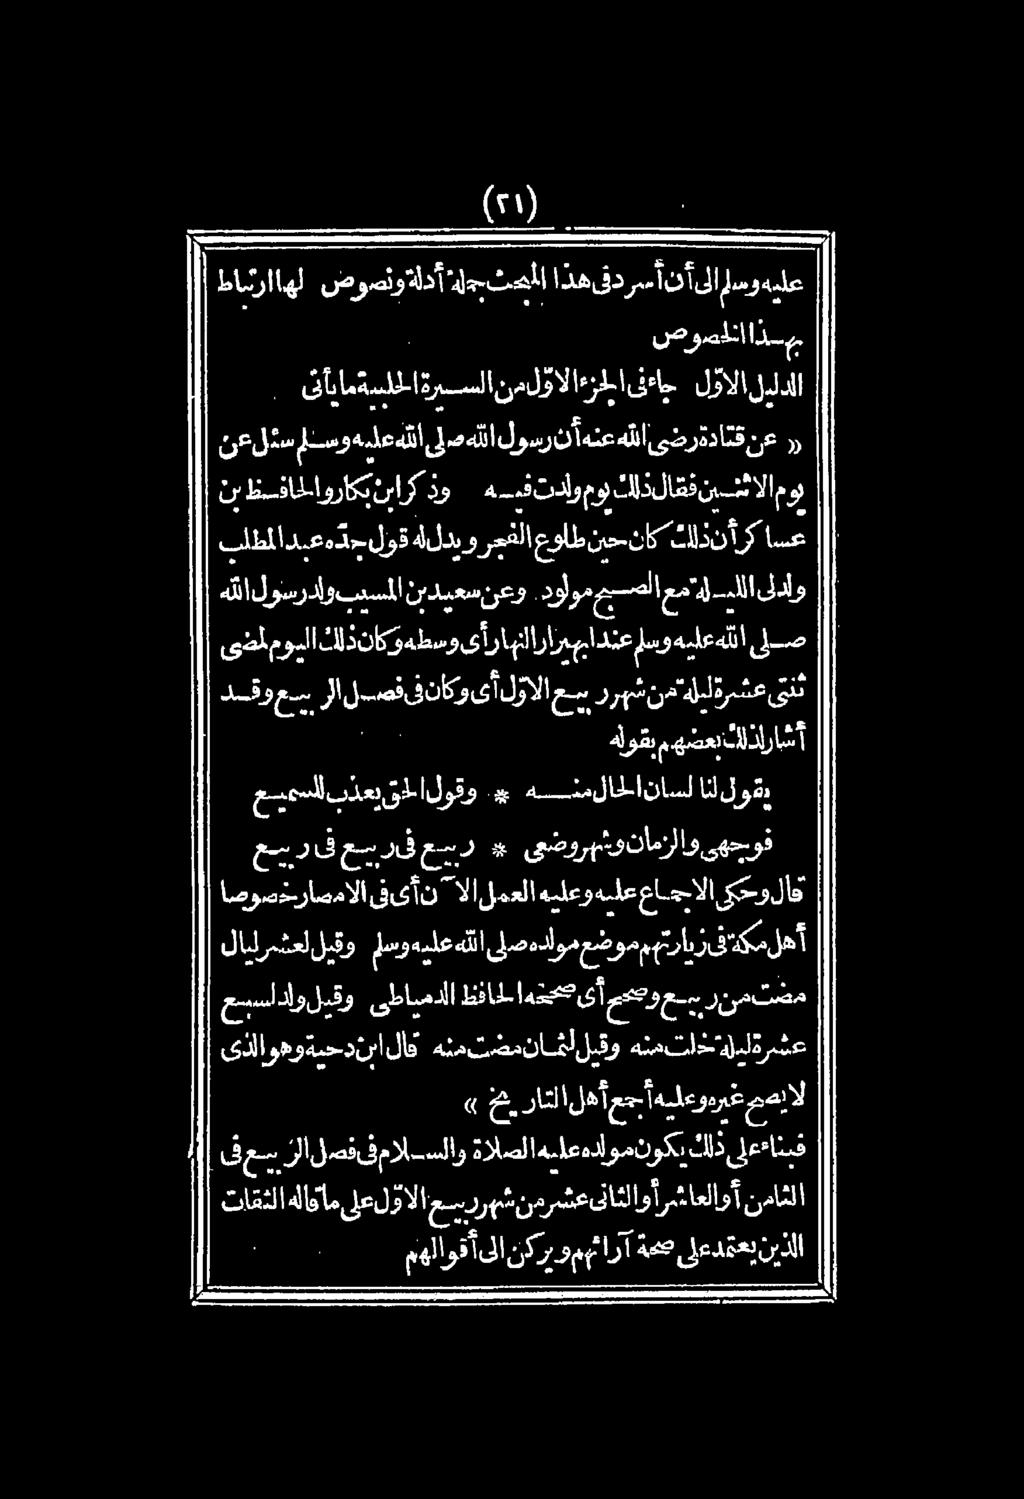 (٢١)
عليه وسلم الى أن أسرد فى هذا المبحث جملة أدلة ونصوص لها ارتباط
بهذا الخصوص
الدليل الاوّل جاء فى الجزء الاوّل من السيرة الحلبية ما يأتى
» عن قتادة رضى الله عنه أن رسول الله صلى الله عليه وسلم سئل عن
يوم الاثنين فقال ذلك يوم ولدت فيه وذكر ابن بكار والحافظ بن
عساكر أن ذلك كان حين طلوع الفجر ويدل له قول جدّه عبد المطلب
ولد لى الليلة مع الصبح مولود . وعن سعيد بن المسيب ولد رسول الله
صلى الله عليه وسلم عند ابهيرار النهار أى وسطه وكان ذلك اليوم لمضى
ثنتى عشرة ليلة من شهر ربيع الاوّل أى وكان فى فصل الربيع وقد
أشار لذلك بعضهم بقوله
يقول لنا لسان الحال منه * وقول الحق يعذب للسميع
فوجهى والزمان وشهر وضعى * ربيع فى ربيع فى ربيع
قال وحكى الاجماع عليه وعليه العمل الآن أى فى الامصار خصوصا
أهل مكة فى زيارتهم موضع مولده صلى الله عليه وسلم وقيل لعشر ليال
مضت من ربيع وصحح أى صححه الحافظ الدمياطى وقيل ولد لسبع
عشرة ليلة خلت منه وقيل لثمان مضت منه قال ابن دحية وهو الذى
لا يصح غيره وعليه أجمع أهل التاريخ «
فبناء على ذلك يكون مولده عليه الصلاة والسلام فى فصل الربيع فى
الثامن أو العاشر أو الثانى عشر من شهر ربيع الاوّل على ما قاله الثقات
الذين يعتمد على صحة آرائهم ويركن الى أقوالهم